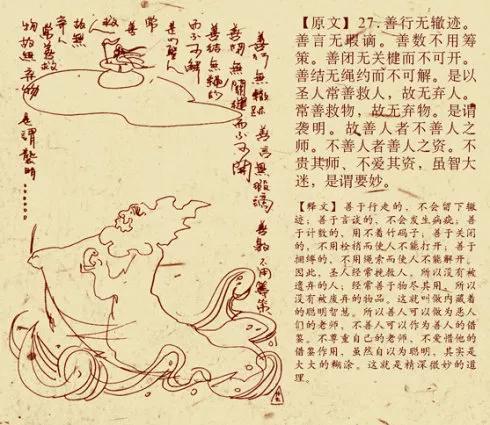 善行無轍跡 善言無瑕謫 善數不用籌策
善閉無關楗而不可開
善結無繩約
而不可解
是以聖人
常
善
救人
故無
棄人
常善救
物故無棄物 是謂襲明......
【原文】27.善行无辙迹。
善言无瑕谪。善数不用筹
策。善闭无关楗而不可开。
善结无绳约而不可解。是以
圣人常善救人，故无弃人。
常善救物，故无弃物。是谓
袭明。故善人者不善人之
师。不善人者善人之资。不
贵其师、不爱其资，虽智大
迷，是谓要妙。
【释文】善于行走的，不会留下辙
迹；善于言谈的，不会发生病疵；善
于计数的，用不着竹码子；善于关闭
的，不用栓梢而使人不能打开；善于
捆缚的，不用绳索而使人不能解开。
因此，圣人经常挽救人，所以没有被
遗弃的人；经常善于物尽其用，所以
没有被废弃的物品。这就叫做内藏着
的聪明智慧。所以善人可以做为恶人
们的老师，不善人可以作为善人的借
鉴。不尊重自己的老师，不爱惜他的
借鉴作用，虽然自以为聪明，其实是
大大的糊涂。这就是精深微妙的道
理。